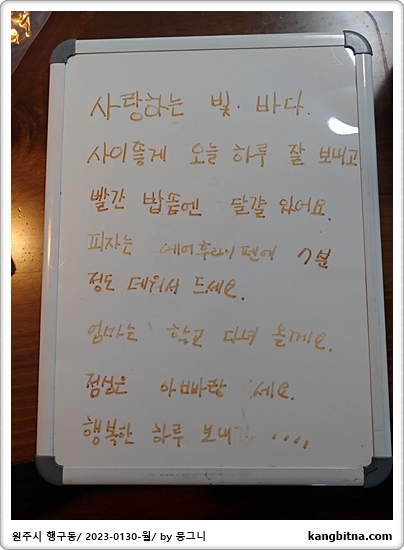 사랑하는 빛. 바다.
사이좋게 오늘 하루 잘 보내고
빨간 밥솥엔 달걀 있어요.
피자는 에어후라이팬에 7분
정도 데워서 드세요.
엄마는 학교 다녀 올께요.
점심은 아빠랑 세요.
행복한 하루 보내기 ....
원주시 행구동/ 2023-0130-월/ by 뭉그니
kangbitna.com